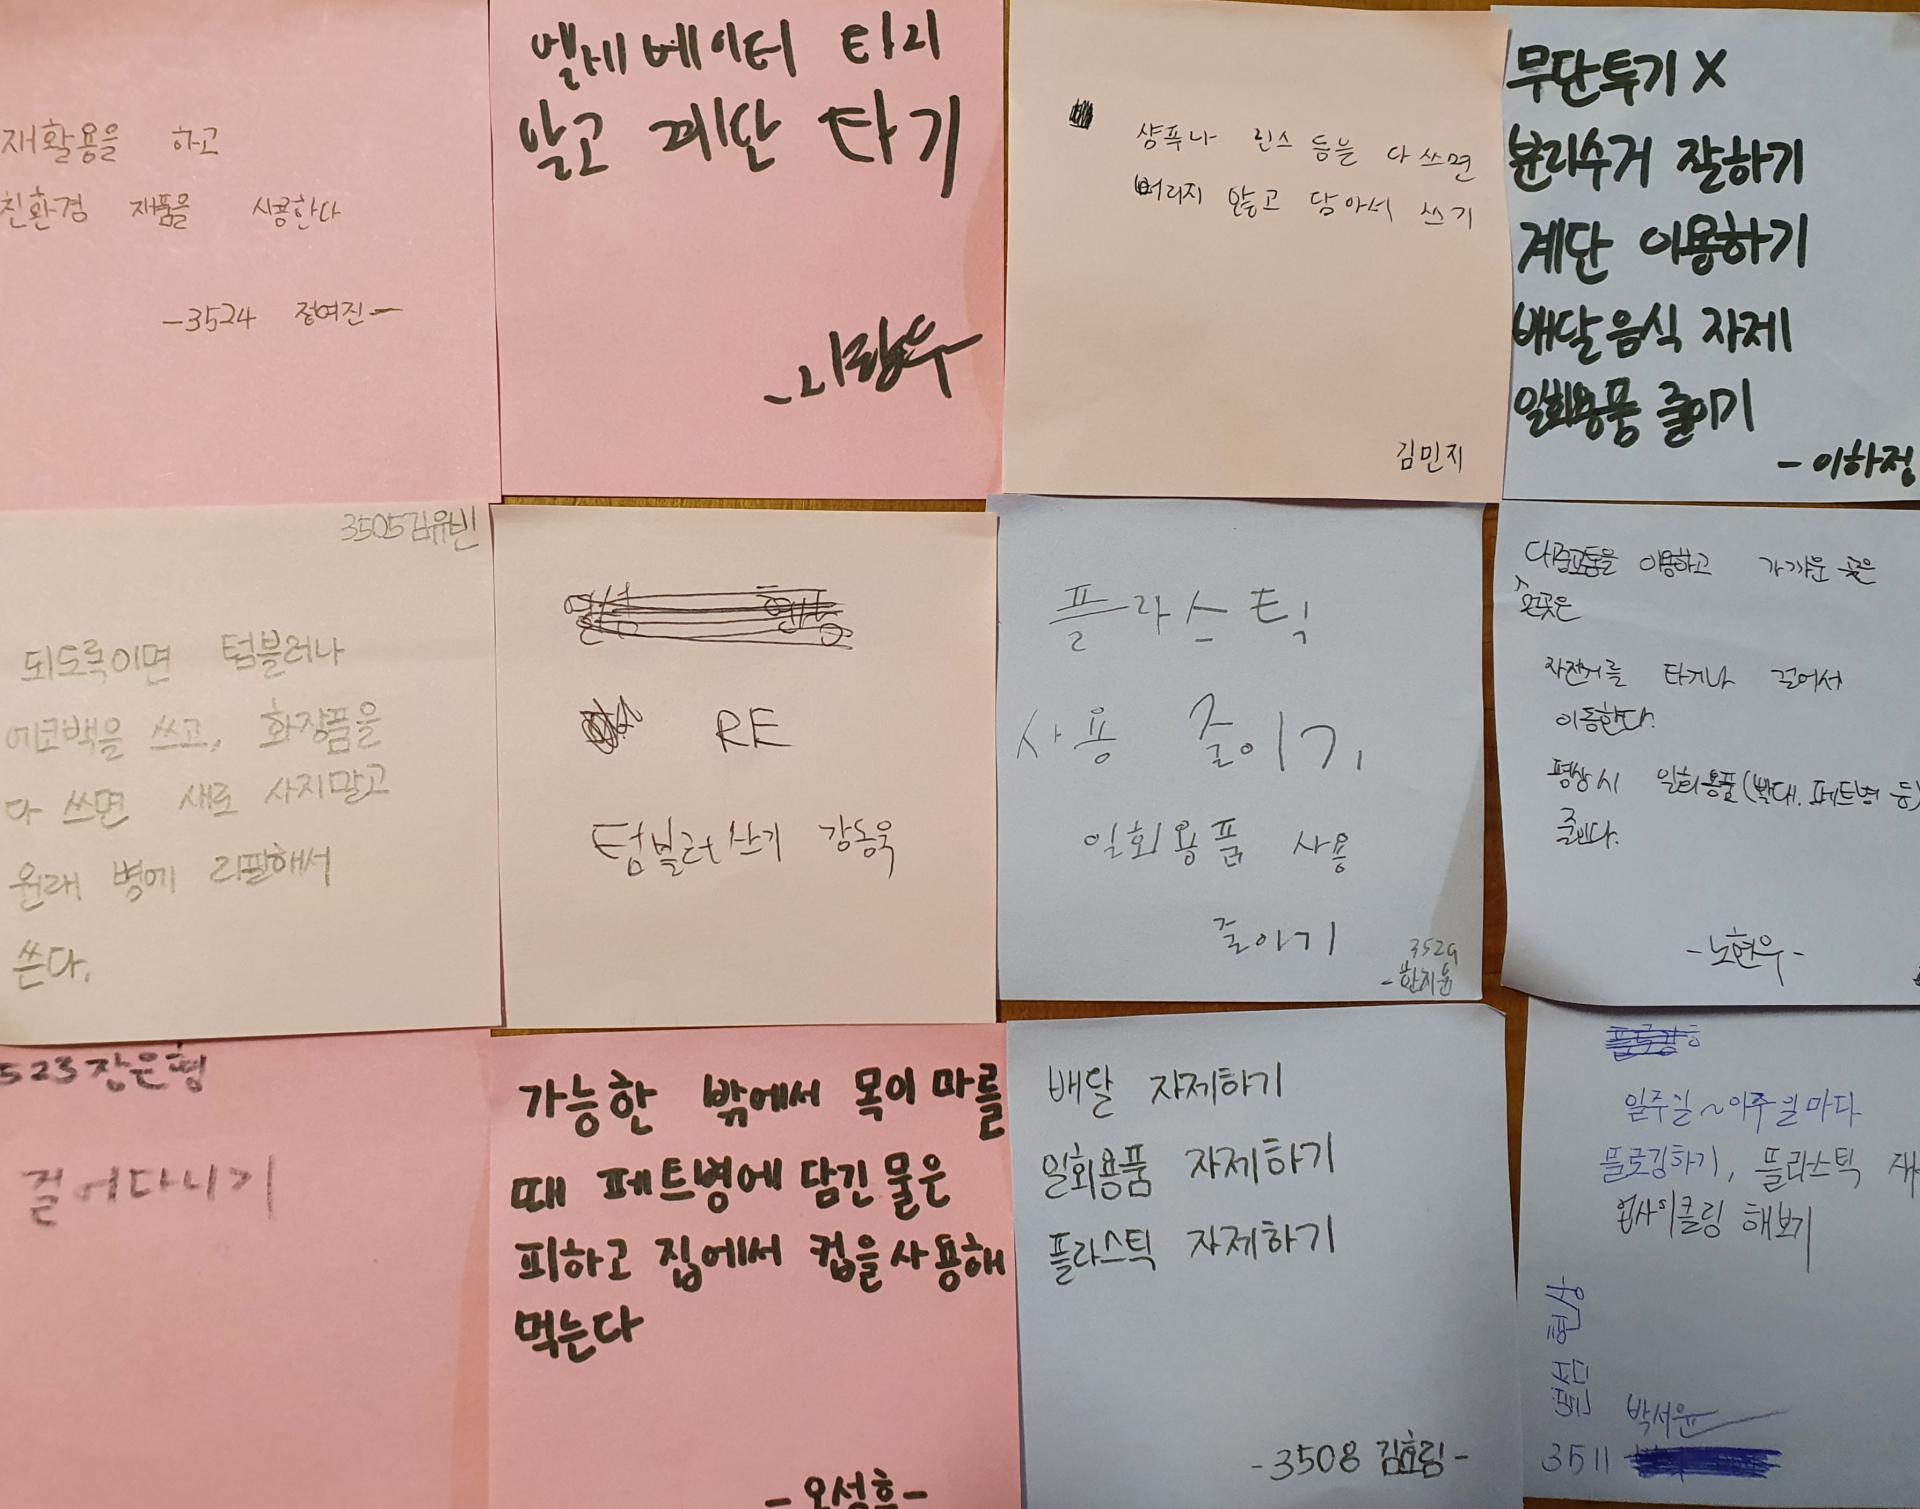 재활용을 하고
친환경 제품을 사용한다
-3524 정여진-
엘레베이터 타지
말고 계단 타기
샹푸나 린스 등을 다 쓰면
버리지 않고 담아서 쓰기
김민지
무단투기 X
분리수거 잘하기
계단 이용하기
배달음식 자제
일회용품 줄이기
- 이하정
3505 김유빈
되도록이면 텀블러나
에코백을 쓰고, 화장품을
다 쓰면 새로 사지말고
원래 병에 리필해서
쓴다.
RE
텀블러 쓰기 강동욱
플라스틱
사용 줄이기
일회용품 사용
줄이기
3529
-한지윤
대중교통을 이용하고 가까운 곳은
자전거를 타거나 걸어서
이동한다.
평상시 일회용품(빨대, 페트병 등)
줄인다.
-노현우-
523 장은형
걸어다니기
가능한 밖에서 목이 마를
때 페트병에 담긴 물은
피하고 집에서 컵을 사용해
먹는다
- 오성훈-
배달 자제하기
일회용품 자제하기
플라스틱 자제하기
-3508 김효림-
일주일~이주일마다
플로깅하기, 플라스틱 재
업사이클링 해보기
박서윤
3511